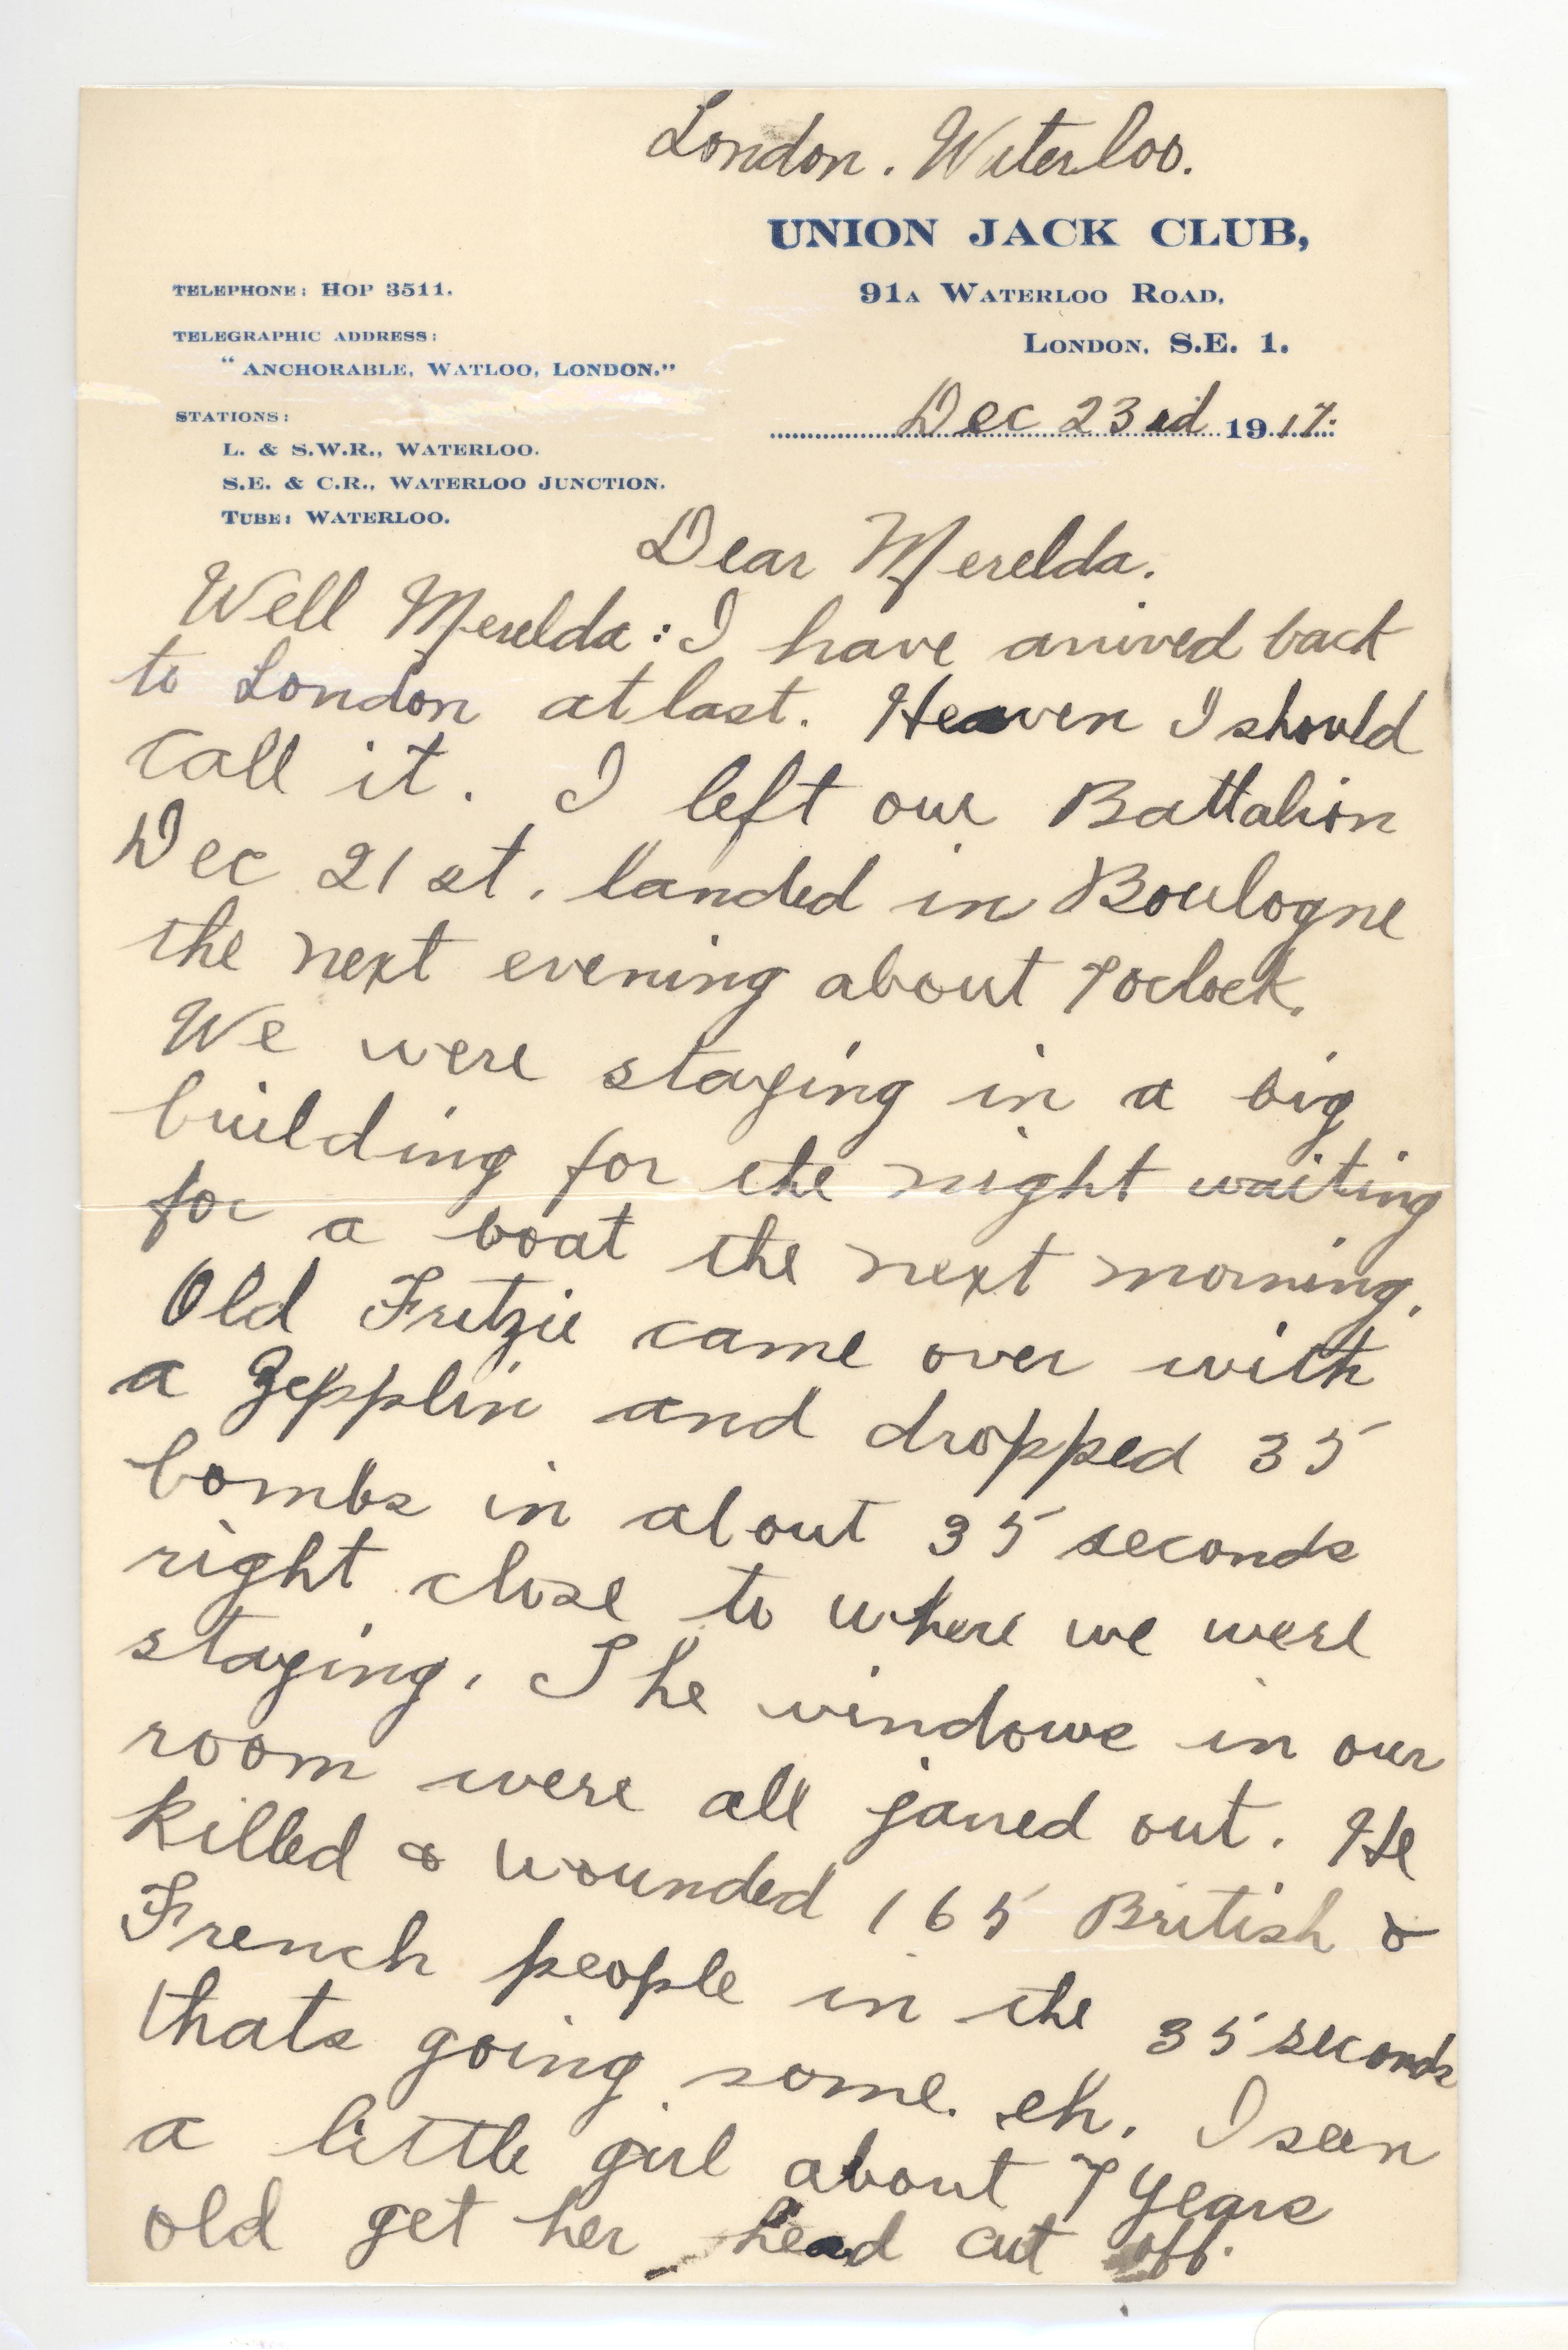 London. Waterloo.
UNION JACK CLUB,
91A WATERLOO ROAD,
LONDON, S.E. 1.
TELEPHONE: HOP 3511.
TELEGRAPHIC ADDRESS:
"ANCHORABLE, WATLOO, LONDON."
STATIONS:
L. & S.W.R., WATERLOO.
S.E. & C.R., WATERLOO JUNCTION.
TUBE: WATERLOO.
Dec 23rd 1917.
Dear Merelda.
Well Merelda: I have arrived back
to London at last. Heaven I should
call it. I left our Battalion
Dec 21st. landed in Boulogne
the next evening about 7 oclock.
We were staying in a big
building for the night waiting
for a boat the next morning.
Old Fritzie came over with
a Zepplin and dropped 35
bombs in about 35 seconds
right close to where we were
staying. The windows in our
room were all jarred out. He
killed & wounded 165 British &
French people in the 35 seconds
thats going some. eh. I seen
a little girl about 7 years
old get her head cut off.